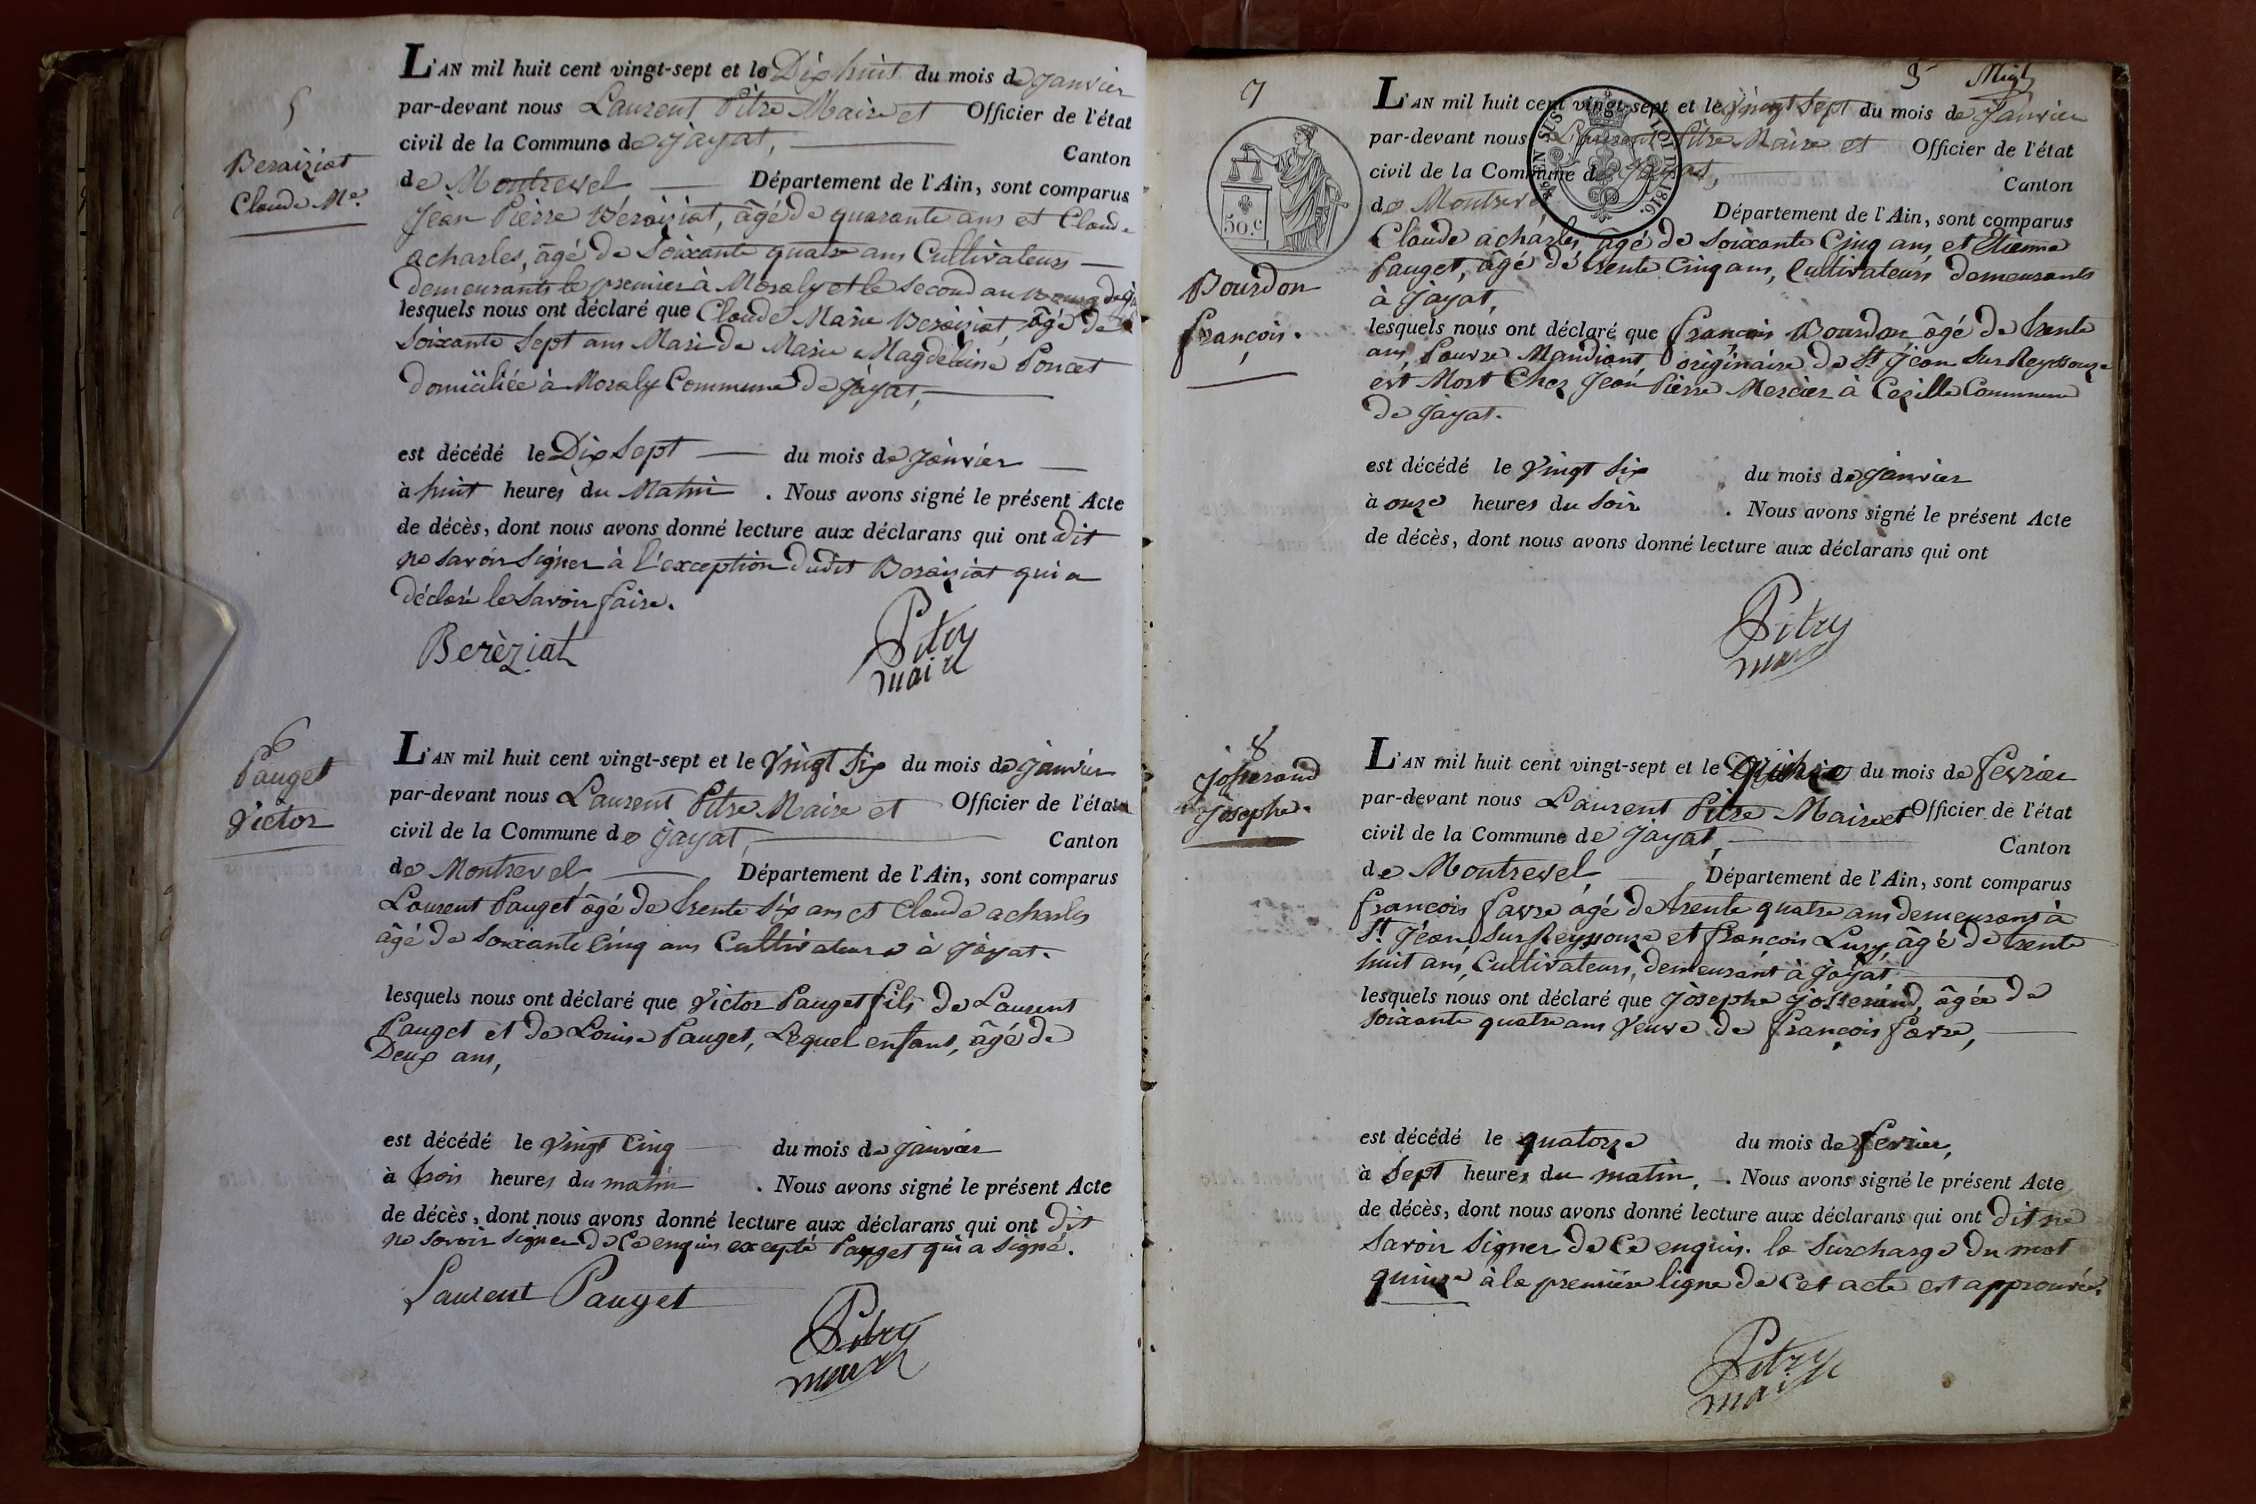 5
Beraiziat
Claude Mie
L'AN mil huit cent vingt-sept et le Dix huit du mois de janvier
par-devant nous Laurent Pitre Maire et Officier de l'état
civil de la Commune de Jayat,
Canton
de Montrevel Département de l'Ain, sont comparus
Jean Pierre Beraiziat, âgé de quarante ans et Claude
acharles, âgé de Soixante quatre ans Cultivateurs
demeurants le premier à Moraly et le second au bourg de
lesquels nous ont déclaré que Claude Marie Beraiziat, âgé de
Soixante Sept ans Mari de Marie Magdeleine Poncet
domiciliée à Moraly Commune de Jayat,
est décédé le Dix Sept du mois de janvier
à huit heures du Matin . Nous avons signé le présent Acte
de décès, dont nous avons donné lecture aux déclarans qui ont dit
ne savoir Signer à l'exception dudit Beraiziat qui a
déclaré le Savoir faire.
Berèziat
Pitre
maire
6
Pauget
Victor
L'AN mil huit cent vingt-sept et le Vingt Six du mois de janvier
par-devant nous Laurent Pitre Maire et Officier de l'état
civil de la Commune de Jayat,
Canton
de Montrevel Département de l'Ain, sont comparus
Laurent Pauget âgé de trente Six ans et Claude acharles
âgé de Soixante Cinq ans Cultivateurs à Jayat.
lesquels nous ont déclaré que Victor Pauget fils de Laurent
Pauget et de Louise Pauget, Lequel enfant, âgé de
Deux ans,
est décédé le Vingt Cinq du mois de janvier
à trois heures du matin . Nous avons signé le présent Acte
de décès, dont nous avons donné lecture aux déclarans qui ont dit
ne savoir signer de Ce enquis excepté Pauget qui a Signé.
Laurent Pauget
Pitre
maire
7
50.c
Bourdon
françois.
L'AN mil huit cent vingt-sept et le Vingt Sept du mois de Janvier
par-devant nous Laurent Pitre Maire et Officier de l'état
civil de la Commune de Jayat,
Canton
de Montrevel
Département de l'Ain, sont comparus
Claude acharles, âgé de Soixante Cinq ans et Etienne
Pauget, âgé de trente Cinq ans, Cultivateurs demeurants
à Jayat,
lesquels nous ont déclaré que françois Bourdon âgé de trente
ans, Pauvre Mandiant originaire de St. Jean Sur Reyssouze
est Mort Chez Jean Pierre Mercier à Cezille Commune
de Jayat.
est décédé le Vingt Six du mois de janvier
à onze heures du Soir . Nous avons signé le présent Acte
de décès, dont nous avons donné lecture aux déclarans qui ont
Pitre
maire
8
Josserand
Josephe.
L'AN mil huit cent vingt-sept et le Quinze du mois de fevrier
par-devant nous Laurent Pitre Maire et Officier de l'état
civil de la Commune de Jayat,
Canton
de Montrevel, Département de l'Ain, sont comparus
françois favre âgé de trente quatre ans demeurant à
St. Jean Sur Reyssouze et françois Lury, âgé de trente
huit ans, Cultivateurs, demeurant à Jayat
lesquels nous ont déclaré que Josephe Josserand, âgée de
soixante quatre ans Veuve de françois favre,
est décédé le quatorze du mois de fevrier,
à Sept heures du matin, . Nous avons signé le présent Acte
de décès, dont nous avons donné lecture aux déclarans qui ont dit ne
Savoir Signer de Ce enquis. la Surcharge du mot
quinze à la premiere ligne de Cet acte est approuvée.
Pitre
maire